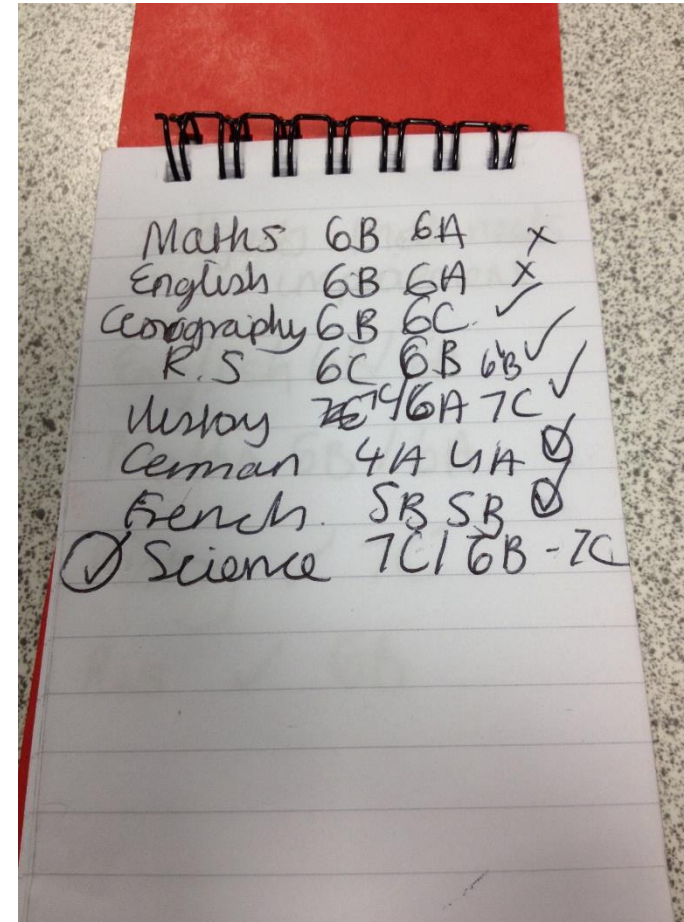 Maths 6B 6A x
English 6B 6A x
Geography 6B 6C. ✓
R.S 6C 6B 6B ✓
History 6A 7C ✓
German 4A 4A ✓
French. 5B 5B ✓
✓ Science 7C/6B-7C